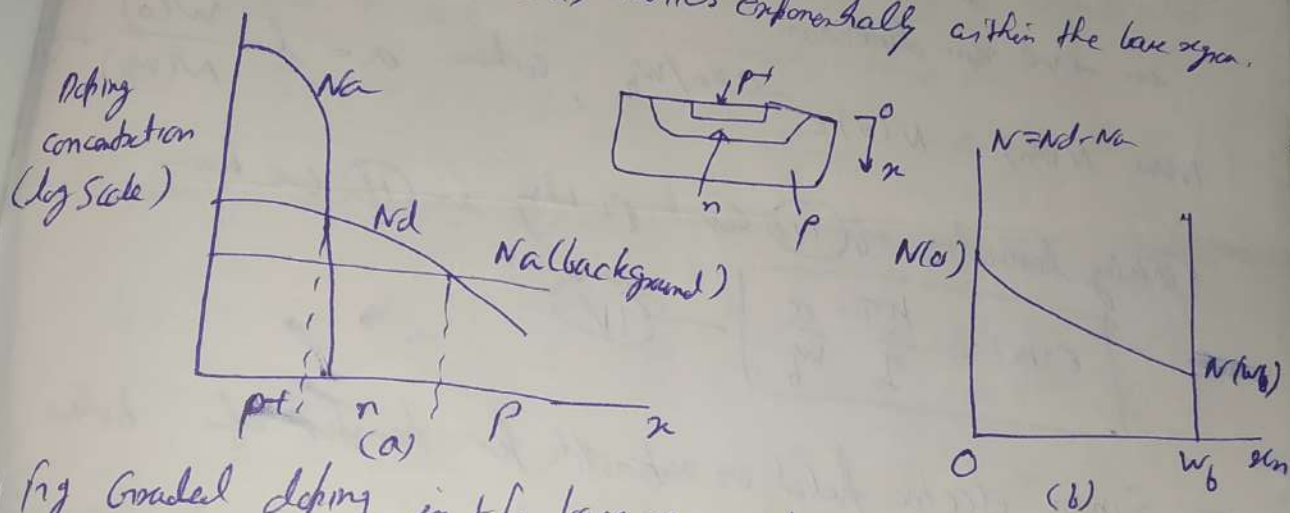 exponentially within the base region.
Doping
concentration
(log Scale)
Na
Nd
Na (background)
p+
n
p
x
(a)
p+
n
p
0
x
N=Nd-Na
N(0)
N(Wb)
0
Wb
xn
(b)
fig Graded doping in the